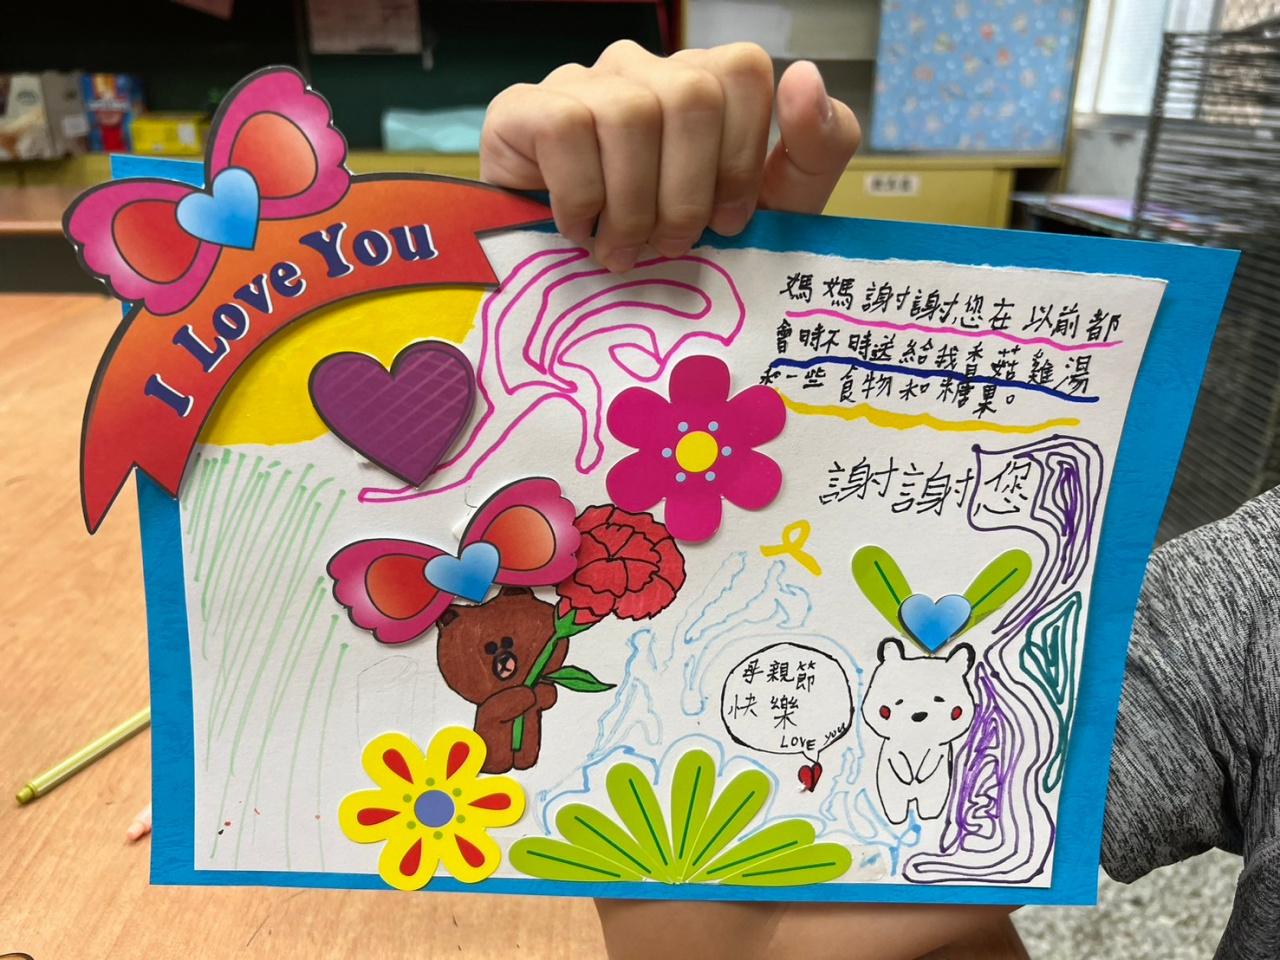 I Love You
媽媽謝謝您在以前都
會時不時送給我香菇雞湯
和一些食物和糖果。
謝謝您
母親節
快樂
LOVE YOU